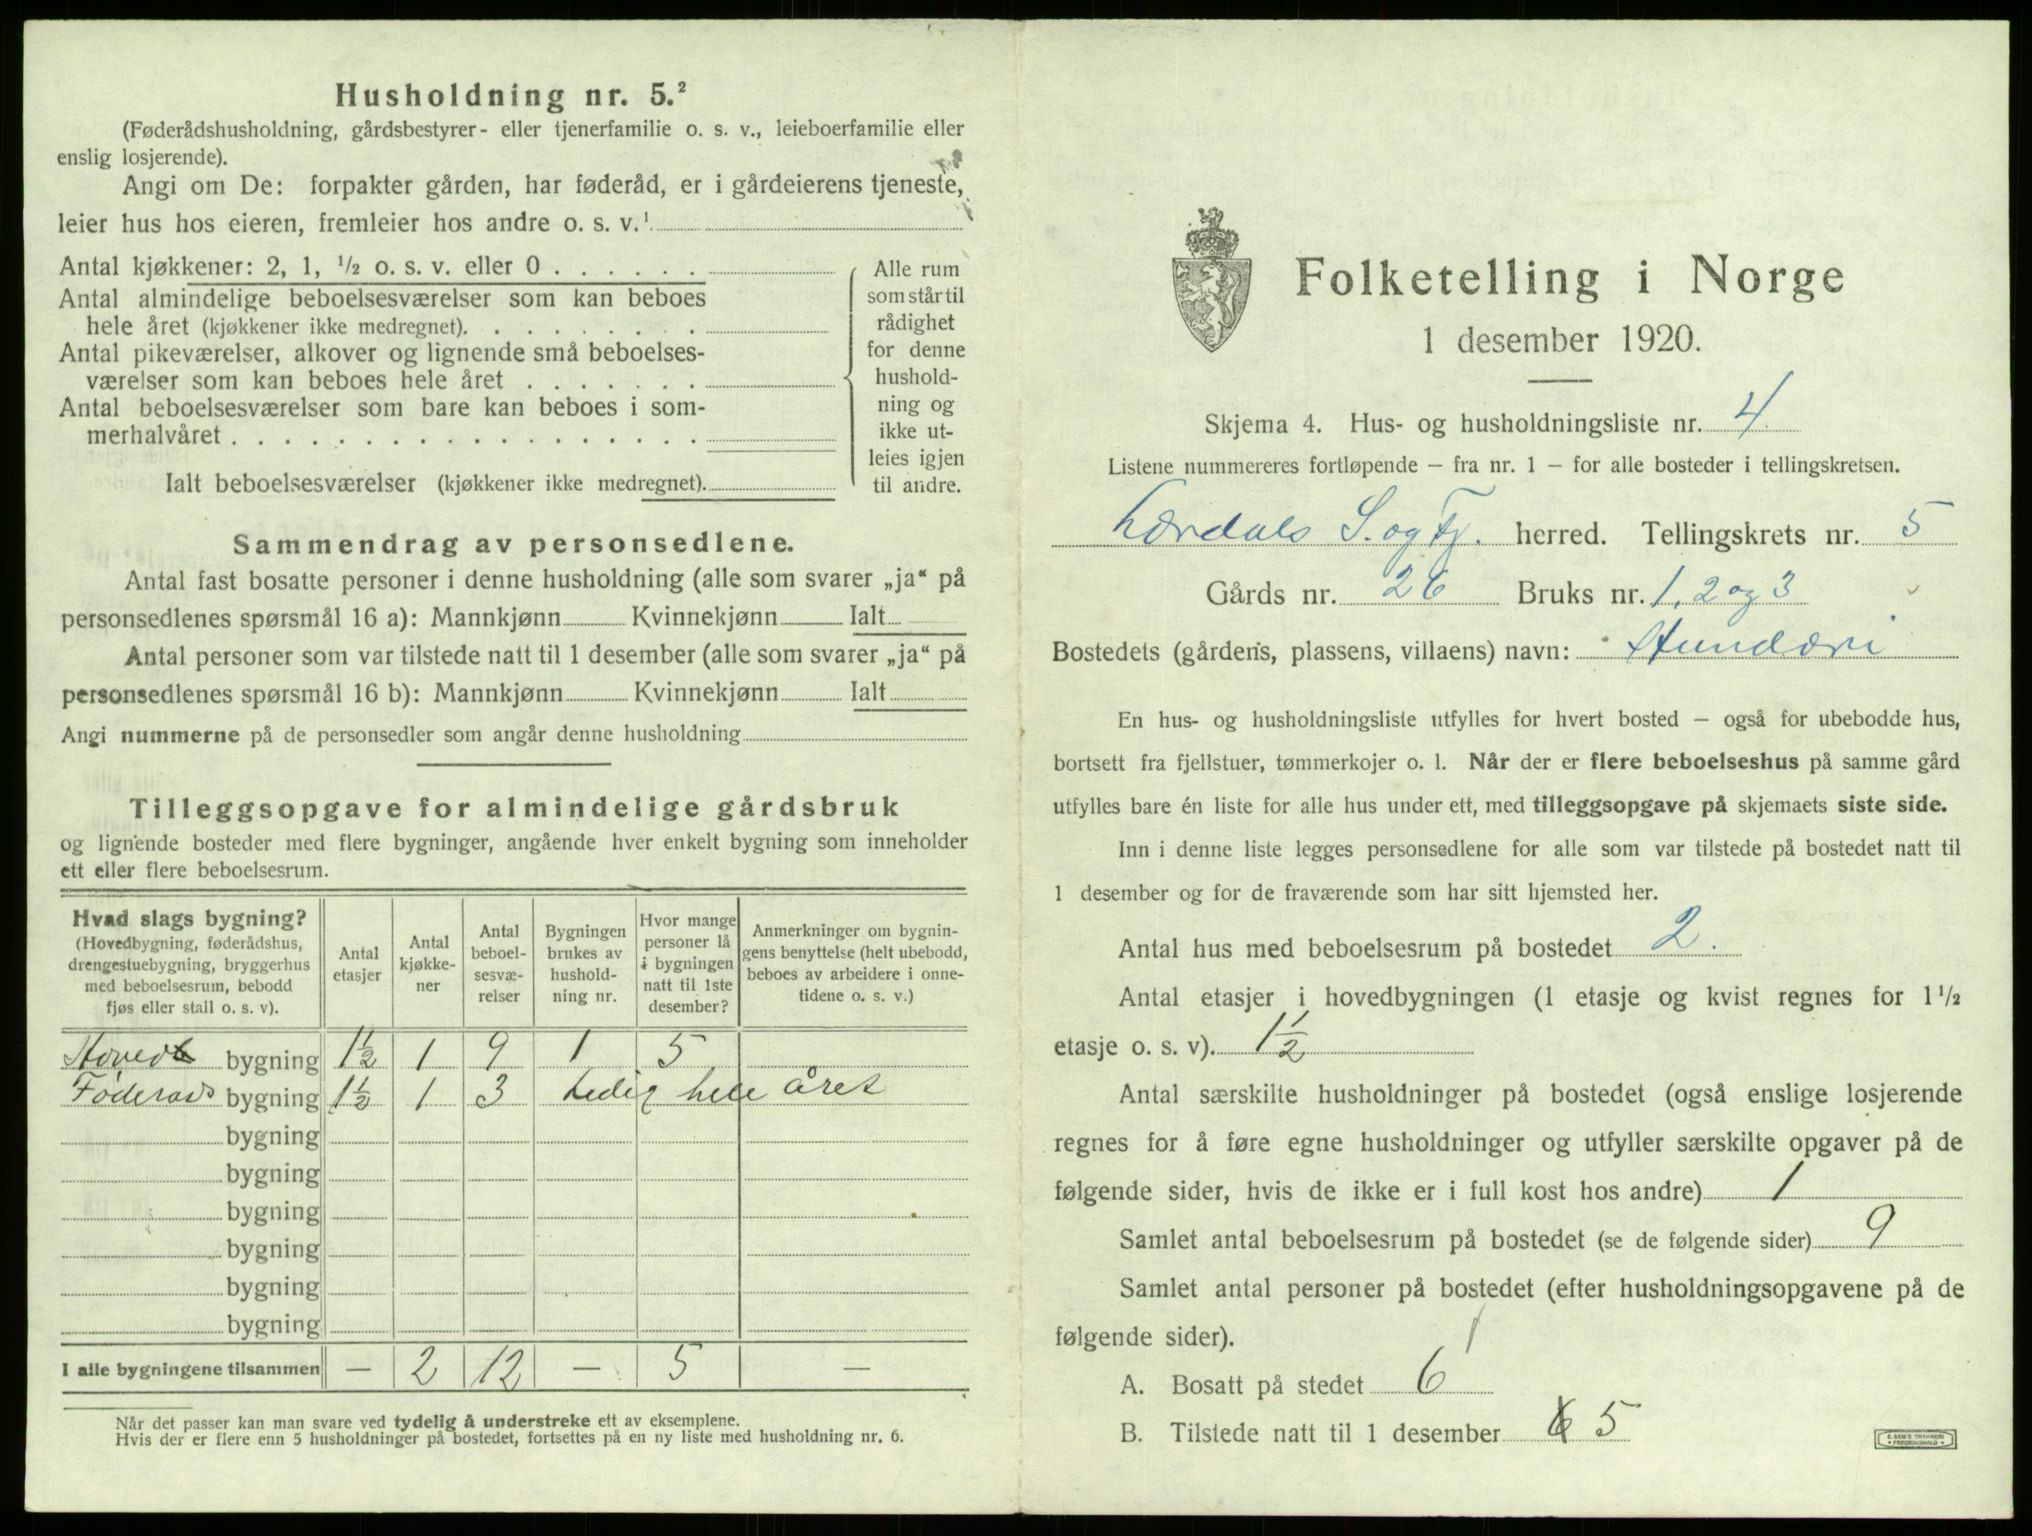 Husholdning nr. 5.²
(Føderådshusholdning, gårdsbestyrer- eller tjenerfamilie o. s. v., leieboerfamilie eller
enslig losjerende).
Angi om De: forpakter gården, har føderåd, er i gårdeierens tjeneste,
leier hus hos eieren, fremleier hos andre o. s. v.¹
Antal kjøkkener: 2, 1, ½ o. s. v. eller 0 . . . . . .
Antal almindelige beboelsesværelser som kan beboes
hele året (kjøkkener ikke medregnet). . . . . . . . .
Antal pikeværelser, alkover og lignende små beboelses-
værelser som kan beboes hele året . . . . . . .
Antal beboelsesværelser som bare kan beboes i som-
merhalvåret . . . . . . . . . . . . . . . . . .
Ialt beboelsesværelser (kjøkkener ikke medregnet).
Alle rum
som står til
rådighet
for denne
hushold-
ning og
ikke ut-
leies igjen
til andre.
Sammendrag av personsedlene.
Antal fast bosatte personer i denne husholdning (alle som svarer „ja“ på
personsedlenes spørsmål 16 a): Mannkjønn Kvinnekjønn Ialt
Antal personer som var tilstede natt til 1 desember (alle som svarer „ja“ på
personsedlenes spørsmål 16 b): Mannkjønn Kvinnekjønn Ialt
Angi nummerne på de personsedler som angår denne husholdning
Tilleggsopgave for almindelige gårdsbruk
og lignende bosteder med flere bygninger, angående hver enkelt bygning som inneholder
ett eller flere beboelsesrum.
Hvad slags bygning?
(Hovedbygning, føderådshus,
drengestuebygning, bryggerhus
med beboelsesrum, bebodd
fjøs eller stall o. s. v).
Antal
etasjer
Antal
kjøkke-
ner
Antal
beboel-
sesvæ-
relser
Bygningen
brukes av
hushold-
ning nr.
Hvor mange
personer lå
i bygningen
natt til 1ste
desember?
Anmerkninger om bygnin-
gens benyttelse (helt ubebodd,
beboes av arbeidere i onne-
tidene o. s. v.)
Hoved bygning 1½ 1 9 1 5
Føderads bygning 1½ 1 3 Ledig hele året
bygning
bygning
bygning
bygning
bygning
bygning
I alle bygningene tilsammen — 2 12 — 5 —
Når det passer kan man svare ved tydelig å understreke ett av eksemplene.
Hvis der er flere enn 5 husholdninger på bostedet, fortsettes på en ny liste med husholdning nr. 6.
Folketelling i Norge
1 desember 1920.
Skjema 4. Hus- og husholdningsliste nr. 4
Listene nummereres fortløpende – fra nr. 1 – for alle bosteder i tellingskretsen.
Lærdals S. og Fj. herred. Tellingskrets nr. 5
Gårds nr. 26 Bruks nr. 1, 2 og 3
Bostedets (gårdens, plassens, villaens) navn: Hundæri
En hus- og husholdningsliste utfylles for hvert bosted – også for ubebodde hus,
bortsett fra fjellstuer, tømmerkojer o. l. Når der er flere beboelseshus på samme gård
utfylles bare én liste for alle hus under ett, med tilleggsopgave på skjemaets siste side.
Inn i denne liste legges personsedlene for alle som var tilstede på bostedet natt til
1 desember og for de fraværende som har sitt hjemsted her.
Antal hus med beboelsesrum på bostedet 2.
Antal etasjer i hovedbygningen (1 etasje og kvist regnes for 1½
etasje o. s. v). 1½
Antal særskilte husholdninger på bostedet (også enslige losjerende
regnes for å føre egne husholdninger og utfyller særskilte opgaver på de
følgende sider, hvis de ikke er i full kost hos andre) 1
Samlet antal beboelsesrum på bostedet (se de følgende sider) 9
Samlet antal personer på bostedet (efter husholdningsopgavene på de
følgende sider). 1
A. Bosatt på stedet 6
B. Tilstede natt til 1 desember 6 5
E. SEM'S TRYKKERI
FREDRIKSHALD